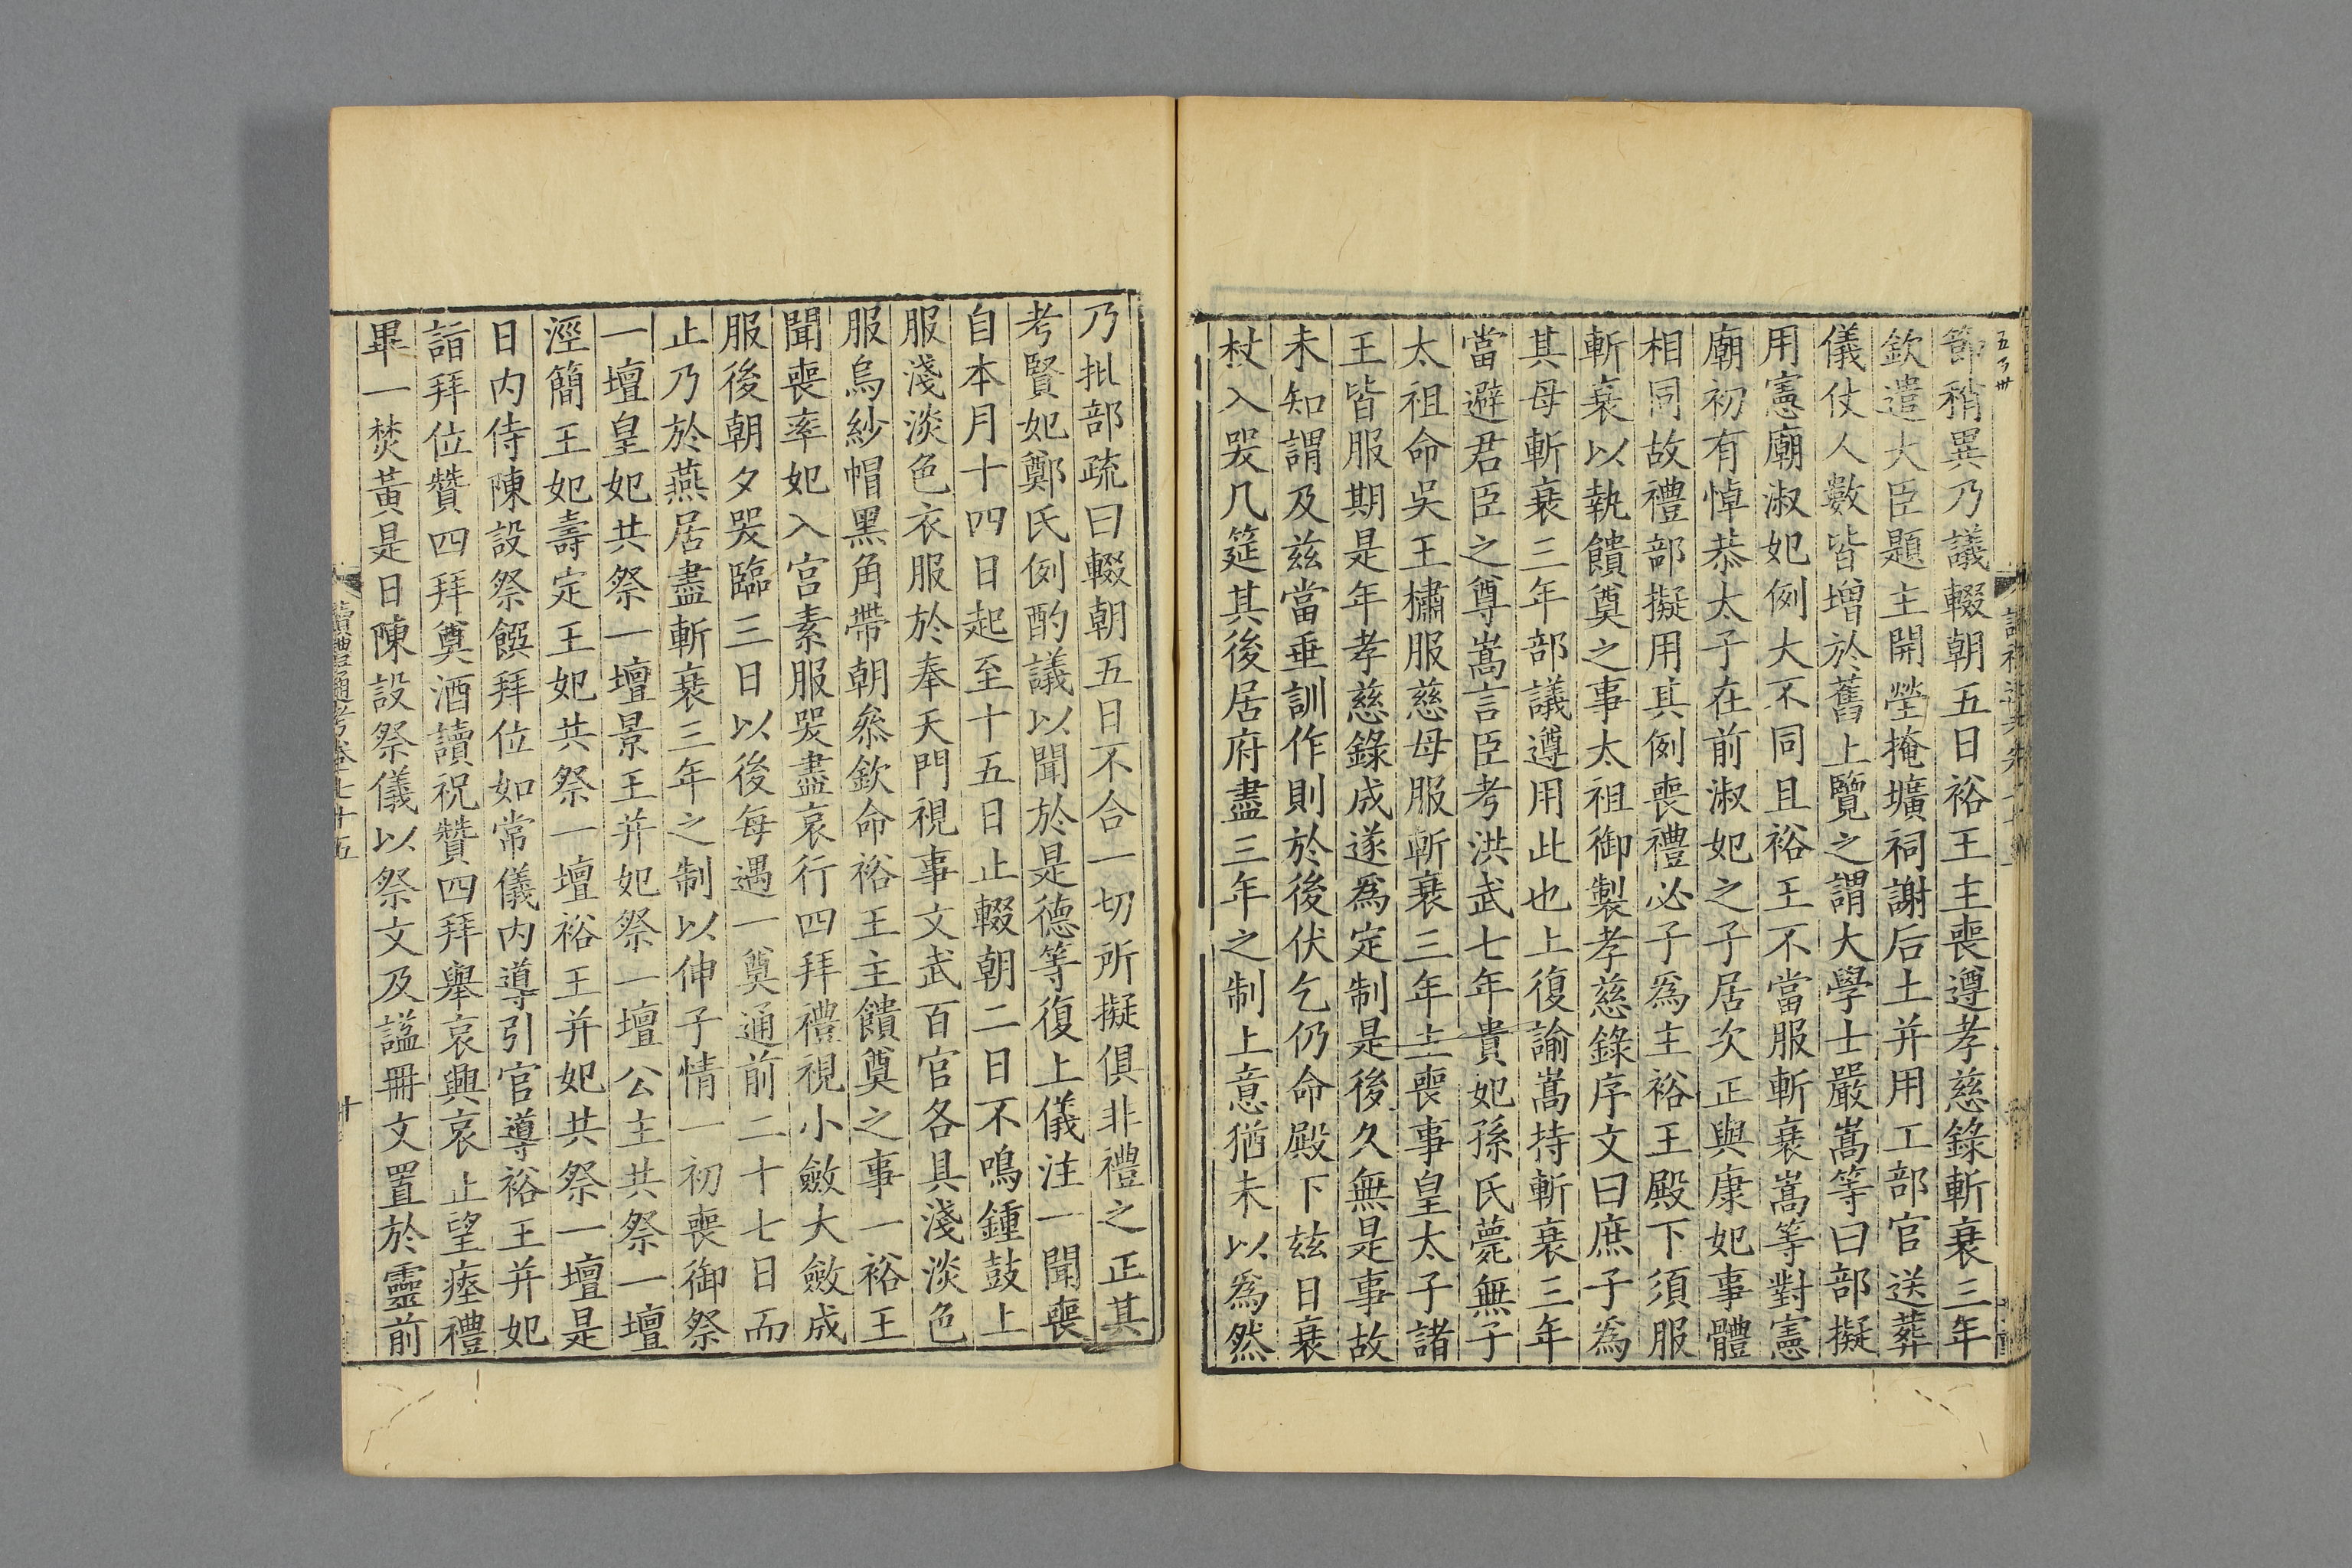 節稍異乃議輟朝五日裕王主喪遵孝慈錄斬衰三年
欽遣大臣題主開塋掩壙祠謝后土并用工部官送葬
儀仗人數皆增於舊上覽之謂大學士嚴嵩等曰部擬
用憲廟淑妃例大不同且裕王不當服斬衰嵩等對憲
廟初有悼恭太子在前淑妃之子居次正與康妃事體
相同故禮部擬用其例喪禮必子爲主裕王殿下須服
斬衰以執饋奠之事太祖御製孝慈錄序文曰庶子爲
其母斬衰三年部議遵用此也上復諭嵩持斬衰三年
當避君臣之尊嵩言臣考洪武七年貴妃孫氏薨無子
太祖命吳王橚服慈母服斬衰三年主喪事皇太子諸
王皆服期是年孝慈錄成遂爲定制是後久無是事故
未知謂及茲當垂訓作則於後伏乞仍命殿下玆日衰
杖入哭几筵其後居府盡三年之制上意猶未以爲然
乃批部疏曰輟朝五日不合一切所擬俱非禮之正其
考賢妃鄭氏例酌議以聞於是德等復上儀注一聞喪
自本月十四日起至十五日止輟朝二日不鳴鍾鼓上
服淺淡色衣服於奉天門視事文武百官各具淺淡色
服烏紗帽黑角帶朝叅欽命裕王主饋奠之事一裕王
聞喪率妃入宮素服哭盡哀行四拜禮視小斂大斂成
服後朝夕哭臨三日以後每遇一奠通前二十七日而
止乃於燕居盡斬衰三年之制以伸子情一初喪御祭
一壇皇妃共祭一壇景王并妃祭一壇公主共祭一壇
涇簡王妃壽定王妃共祭一壇裕王并妃共祭一壇是
日內侍陳設祭饌拜位如常儀內導引官導裕王并妃
詣拜位贊四拜奠酒讀祝贊四拜舉哀興哀止望瘞禮
畢一焚黃是日陳設祭儀以祭文及諡冊文置於靈前
讀禮通考卷七十五
十